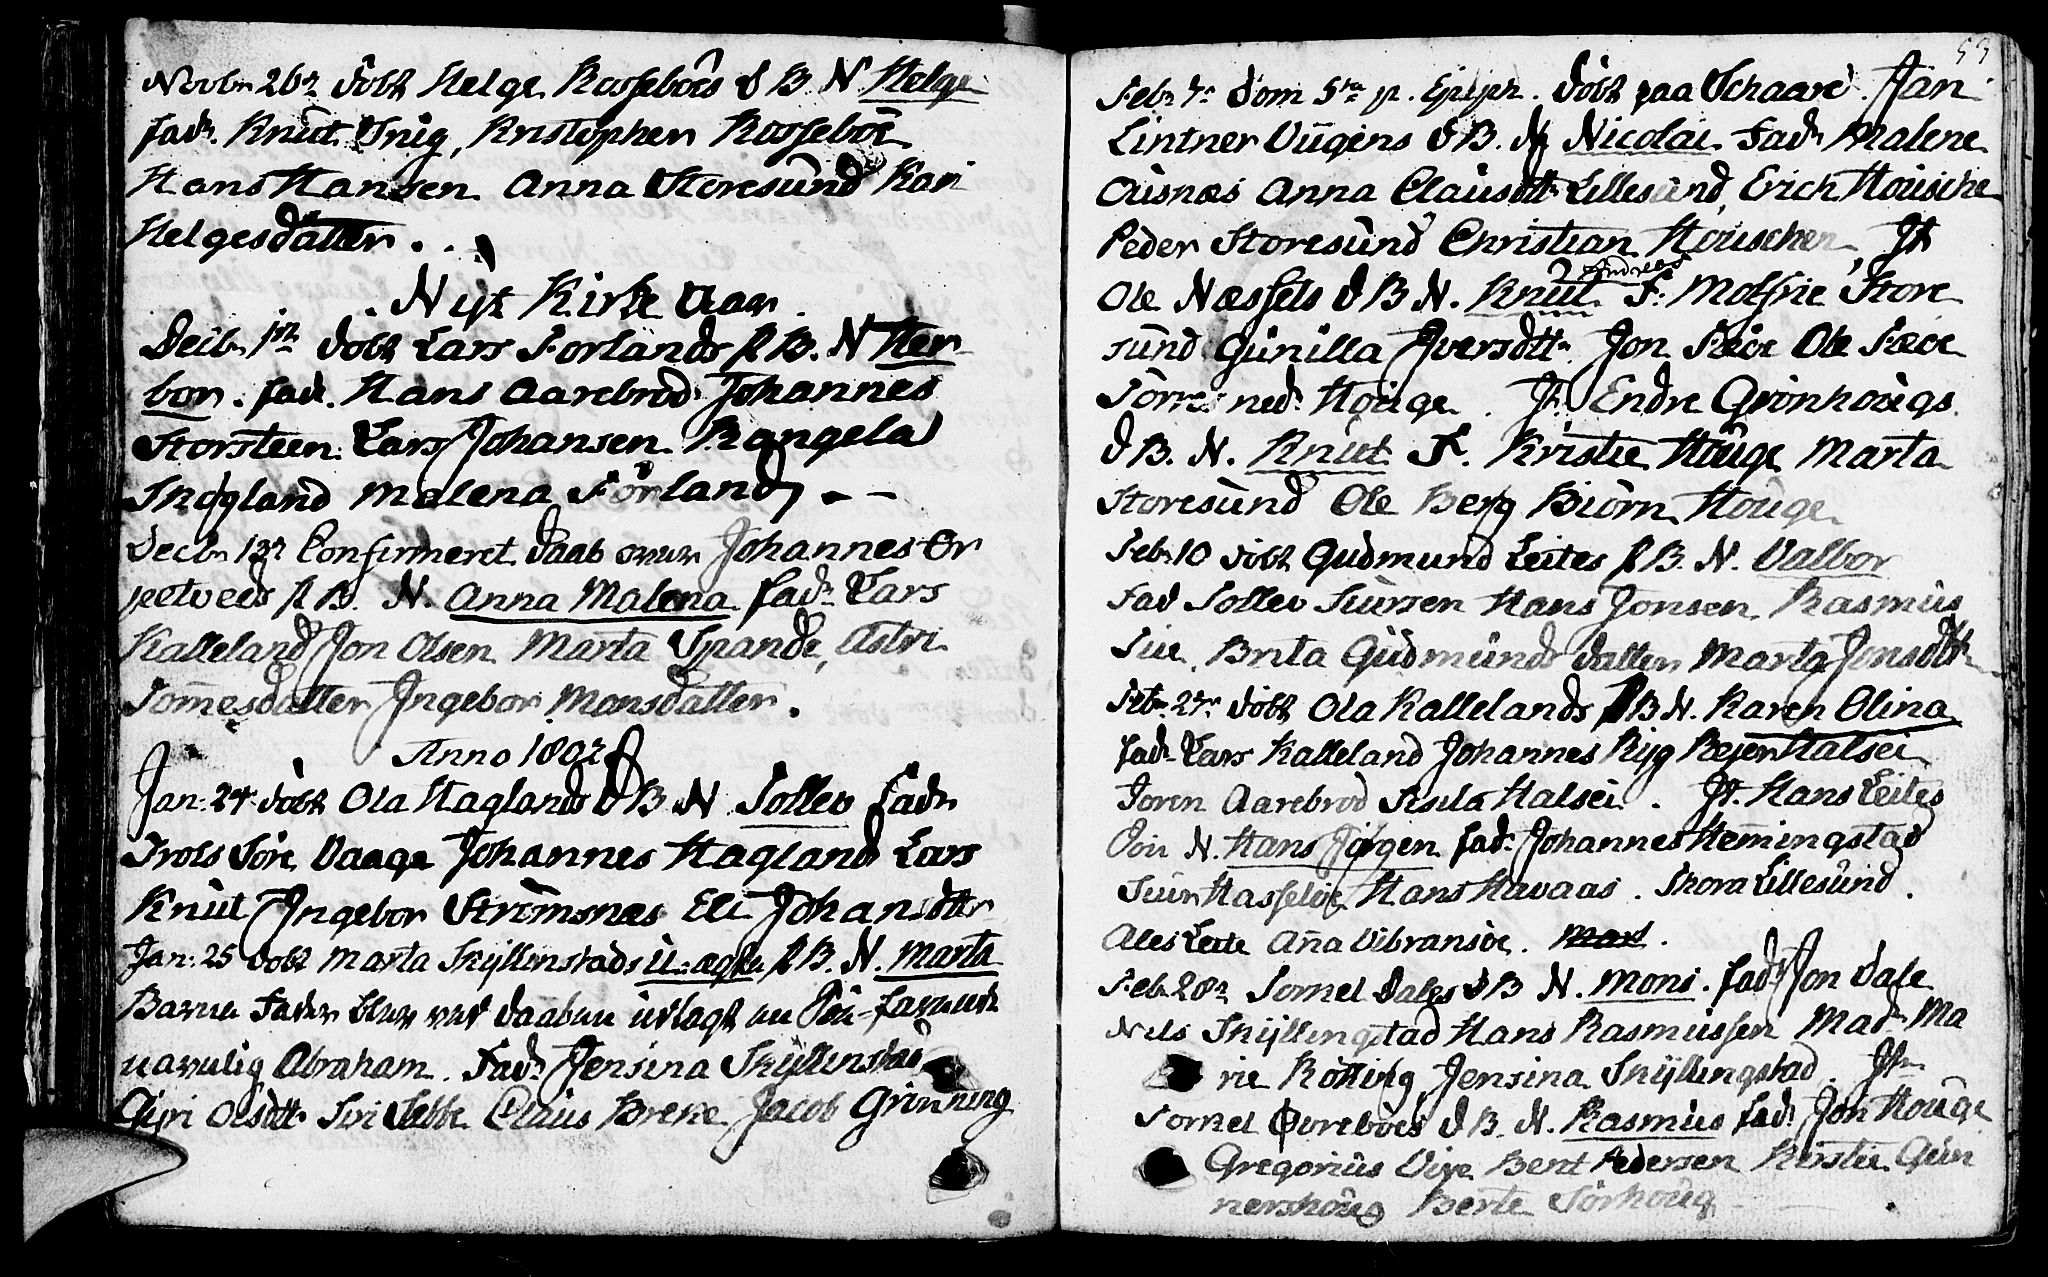 Novbr 26n döbt Helge Rosseböes d B N Helge
fadr. Knut Snig, Kristopher Rosseböe
Hans Hansen Anna Storesund Kari
Helgesdatter.
Nyt Kirke Aar.
Decbr 1n döbt Lars Förlands p B. N Her
bor. fadr. Hans Aarebrod Johannes
Storsteen Lars Johansen Rangela
Skogland Malena Förland
Decbr 13n Confirmeret daab over Johannes Ør
petveds p B. N. Anna Malena fadr Lars
Kalleland Jon Olsen Marta Spande, Astri
Tom̄esdatter Ingebor Monsdatter.
Anno 1802
Jan: 24 döbt Ola Haglands d B N Sollev fadr
Trols Söre Vaage Johannes Hagland Lars
Knut Ingebor Strömsnæs Eli Johansdttr
Jan: 25 döbt Marta Skyllenstads u-ægte p B. N. Marta
Barne Fader blev ved daaben udlagt en
Abraham. Fadr Jensina Skyllenstad
Gyri Olsdttr Siri Sebbe Claus Breke Jacob Grinning
53
Febr 7n Dom 5ta p. Epiph. döbt paa Schaare Jan
Lintner Bügens d B. N Nicolai Fadr Malene
Ousnæs Anna Clausdttr Lillesund, Erich Houschen
Peder Storesund Christian Houschen, It
Ole Næssets d B N. Knut Andreas F: Molfrie Store
sund Gunilla Iversdttr Jon Fæöe Ole Fæöe
Törres ned. Houge. It. Endre Grönhougs
d B. N. Knut F. Kristie Houge Marta
Storesund Ole Berg Biörn Houge
Febr 10 döbt Gudmund Leites p B. N. Valbor
Fad Sollev Siursen Hans Jonsen Rasmus
Lie Brita Gudmunds datter Marta Jonsdttr
Febr 27n döbt Ola Kallelands p B N. Karen Olina
fadr Lars Kalleland Johannes Ryg Reier Halsei
Joren Aarebrod Sisila Halsei. It. Hans Leites
N. Hans Jörgen fadr Johannes Hem̄ingstad
Siur Hasselöe Hans Havaas. Thora Lillesund.
Ales Leite An̄a Vibransöe.
Febr 28n Tomel Dales d B N. Moni. fadr Jon Dale
Nils Skyllingstad Hans Rasmussen Mad. Ma
rie Rötting, Jensina Skyllingstad It
Tomel Øvreböes d B. N. Rasmus fadr Jon Houge
Gregorius Vire Bent Pedersen Kirstie Gun
nershoug Berte Sörhoug